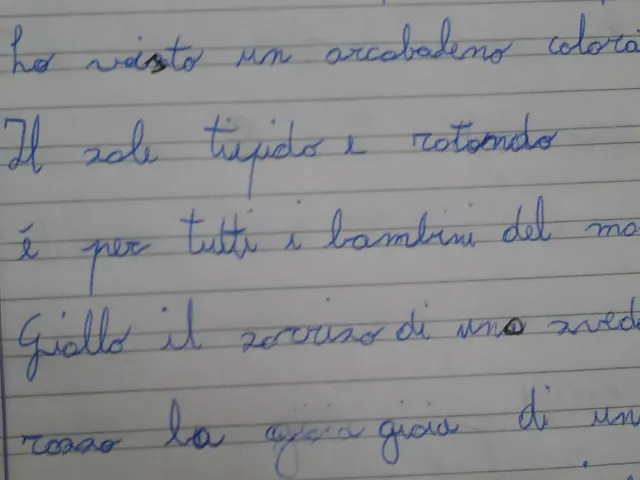 ho visto un arcobadeno colora
Il sole tiepido e rotondo
é per tutti i bambini del mo
Giallo il sorriso di uno sved
rosso la gioia di un